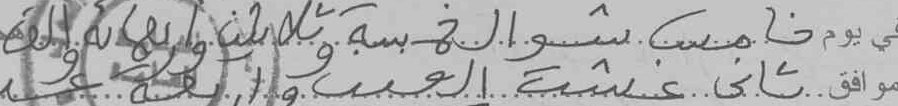 في يوم خامس شوال خمسة وثلاثين وأربعمائة وألف
موافق ثاني غشت ألفين وأربعة عشر